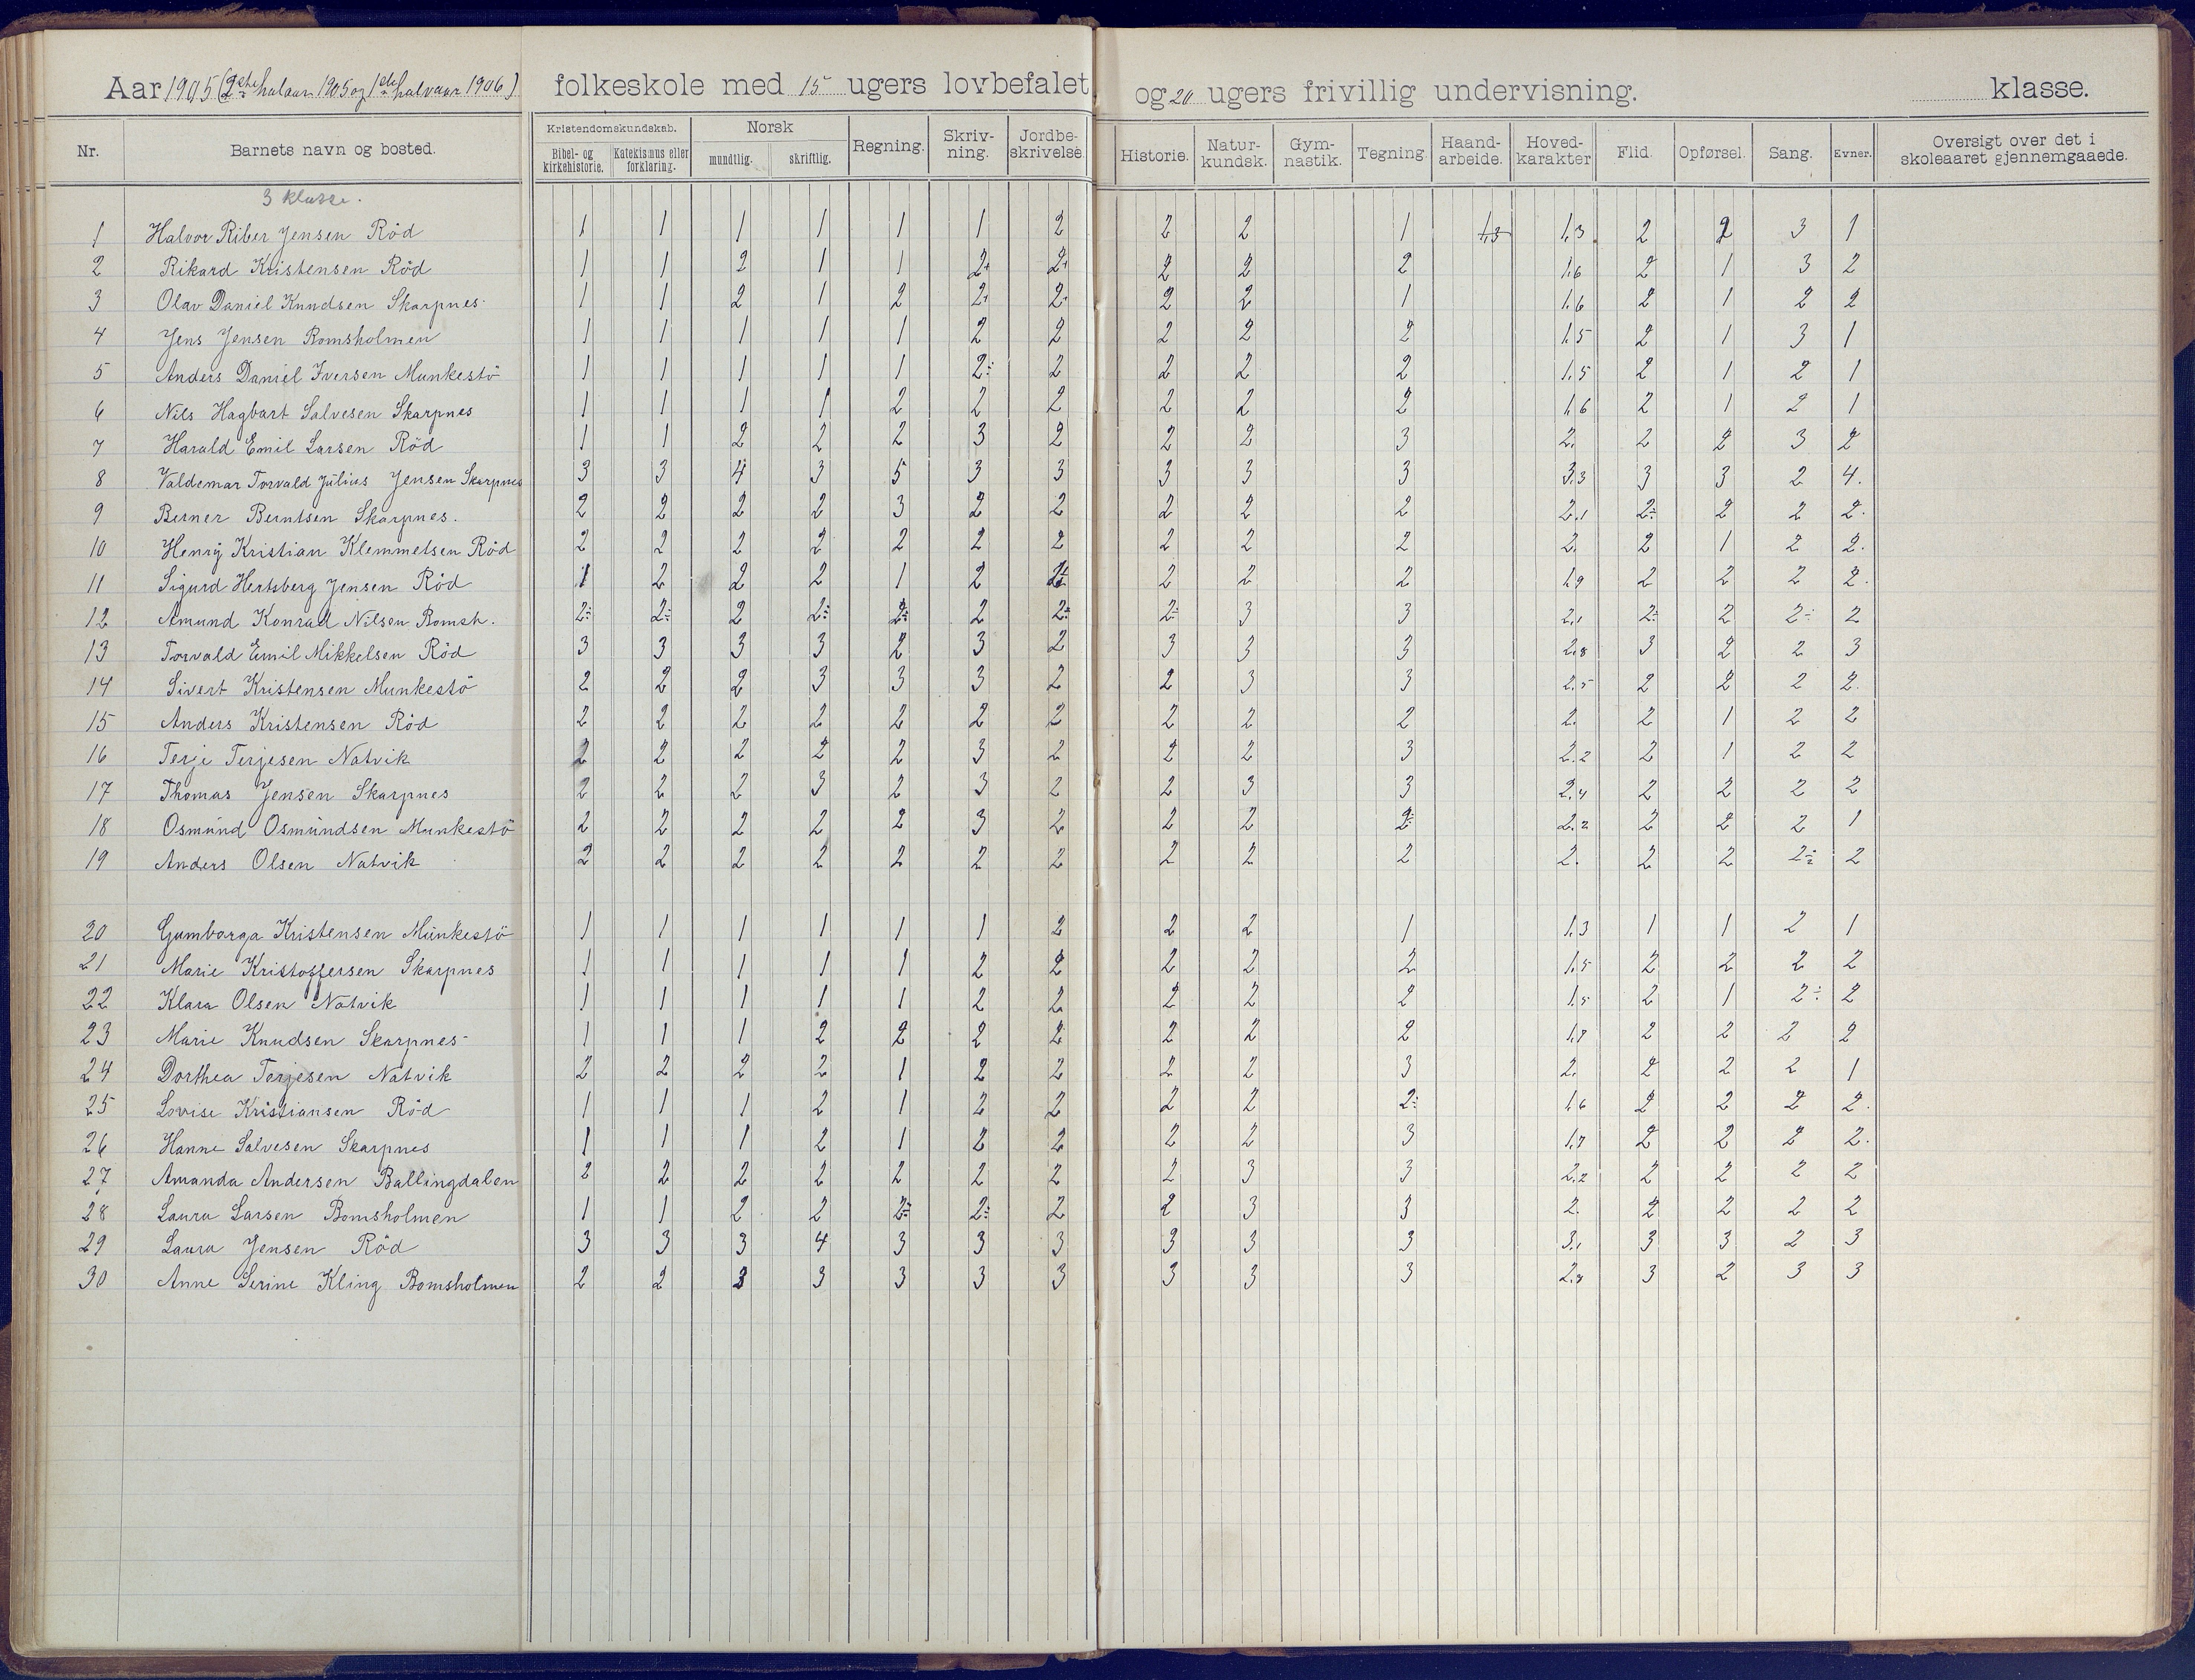 Aar 1905 (2det halaar 1905 og 1ste halvaar 1906) folkeskole med 15 ugers lovbefalet og 20 ugers frivillig undervisning. klasse.
Nr. Barnets navn og bosted. Kristendomskundskab. Bibel- og kirkehistorie. Katekismus eller forklaring. Norsk mundtlig. skriftlig. Regning. Skrivning. Jordbeskrivelse. Historie. Naturkundsk. Gymnastik. Tegning. Haandarbeide. Hovedkarakter Flid. Opførsel. Sang. Evner. Oversigt over det i skoleaaret gjennemgaaede.
3 klasse.
1 Halvor Riber Jensen Röd 1 1 1 1 1 1 2 2 2 1 1,3 1,3 2 2 3 1
2 Rikard Kristensen Röd 1 1 2 1 1 2+ 2+ 2 2 2 1,6 2 1 3 2
3 Olav Daniel Knudsen Skarpnes 1 1 2 1 2 2+ 2+ 2 2 1 1,6 2 1 2 2
4 Jens Jensen Bomsholmen 1 1 1 1 1 2 2 2 2 2 1,5 2 1 3 1
5 Anders Daniel Iversen Munkestö 1 1 1 1 1 2÷ 2 2 2 2 1,5 2 1 2 1
6 Nils Hagbart Salvesen Skarpnes 1 1 1 1 2 2 2 2 2 2 1,6 2 1 2 1
7 Harald Emil Larsen Röd 1 1 2 2 2 3 2 2 2 3 2. 2 2 3 2
8 Valdemar Torvald Julius Jensen Skarpnes 3 3 4 3 5 3 3 3 3 3 3,3 3 3 2 4.
9 Berner Berntsen Skarpnes. 2 2 2 2 3 2 2 2 2 2 2,1 2÷ 2 2 2.
10 Henry Kristian Klemmetsen Röd 2 2 2 2 2 2 2 2 2 2 2. 2 1 2 2.
11 Sigurd Hertsberg Jensen Röd 1 2 2 2 1 2 2 2 2 2 1,9 2 2 2 2.
12 Amund Konrad Nilsen Bomsh. 2÷ 2÷ 2 2÷ 2÷ 2 2÷ 2÷ 3 3 2,1 2÷ 2 2÷ 2
13 Torvald Emil Mikkelsen Röd 3 3 3 3 2 3 2 3 3 3 2,8 3 2 2 3
14 Sivert Kristensen Munkestö 2 2 2 3 3 3 2 2 3 3 2,5 2 2 2 2.
15 Anders Kristensen Röd 2 2 2 2 2 2 2 2 2 2 2. 2 1 2 2
16 Terje Terjesen Natvik 2 2 2 2 2 3 2 2 2 3 2.2 2 1 2 2
17 Thomas Jensen Skarpnes 2 2 2 3 2 3 2 2 3 3 2,4 2 2 2 2
18 Osmund Osmundsen Munkestö 2 2 2 2 2 3 2 2 2 2÷ 2.2 2 2 2 1
19 Anders Olsen Natvik 2 2 2 2 2 2 2 2 2 2 2. 2 2 2÷ 2
20 Gumborga Kristensen Munkestö 1 1 1 1 1 1 2 2 2 1 1,3 1 1 2 1
21 Marie Kristoffersen Skarpnes 1 1 1 1 1 2 2 2 2 2 1,5 2 2 2 2
22 Klara Olsen Natvik 1 1 1 1 1 2 2 2 2 2 1,5 2 1 2÷ 2
23 Marie Knudsen Skarpnes 1 1 1 2 2 2 2 2 2 2 1,7 2 2 2 2
24 Dorthea Terjesen Natvik 2 2 2 2 1 2 2 2 2 3 2. 2 2 2 1
25 Lovise Kristiansen Röd 1 1 1 2 1 2 2 2 2 2÷ 1,6 2 2 2 2.
26 Hanne Salvesen Skarpnes 1 1 1 2 1 2 2 2 2 3 1,7 2 2 2 2.
27 Amanda Andersen Ballingdalen 2 2 2 2 2 2 2 2 3 3 2,2 2 2 2 2
28 Laura Larsen Bomsholmen 1 1 2 2 2÷ 2÷ 2 2 3 3 2. 2 2 2 2
29 Laura Jensen Röd 3 3 3 4 3 3 3 3 3 3 3,1 3 3 2 3
30 Anne Serine Kling Bomsholmen 2 2 3 3 3 3 3 3 3 3 2,8 3 2 3 3